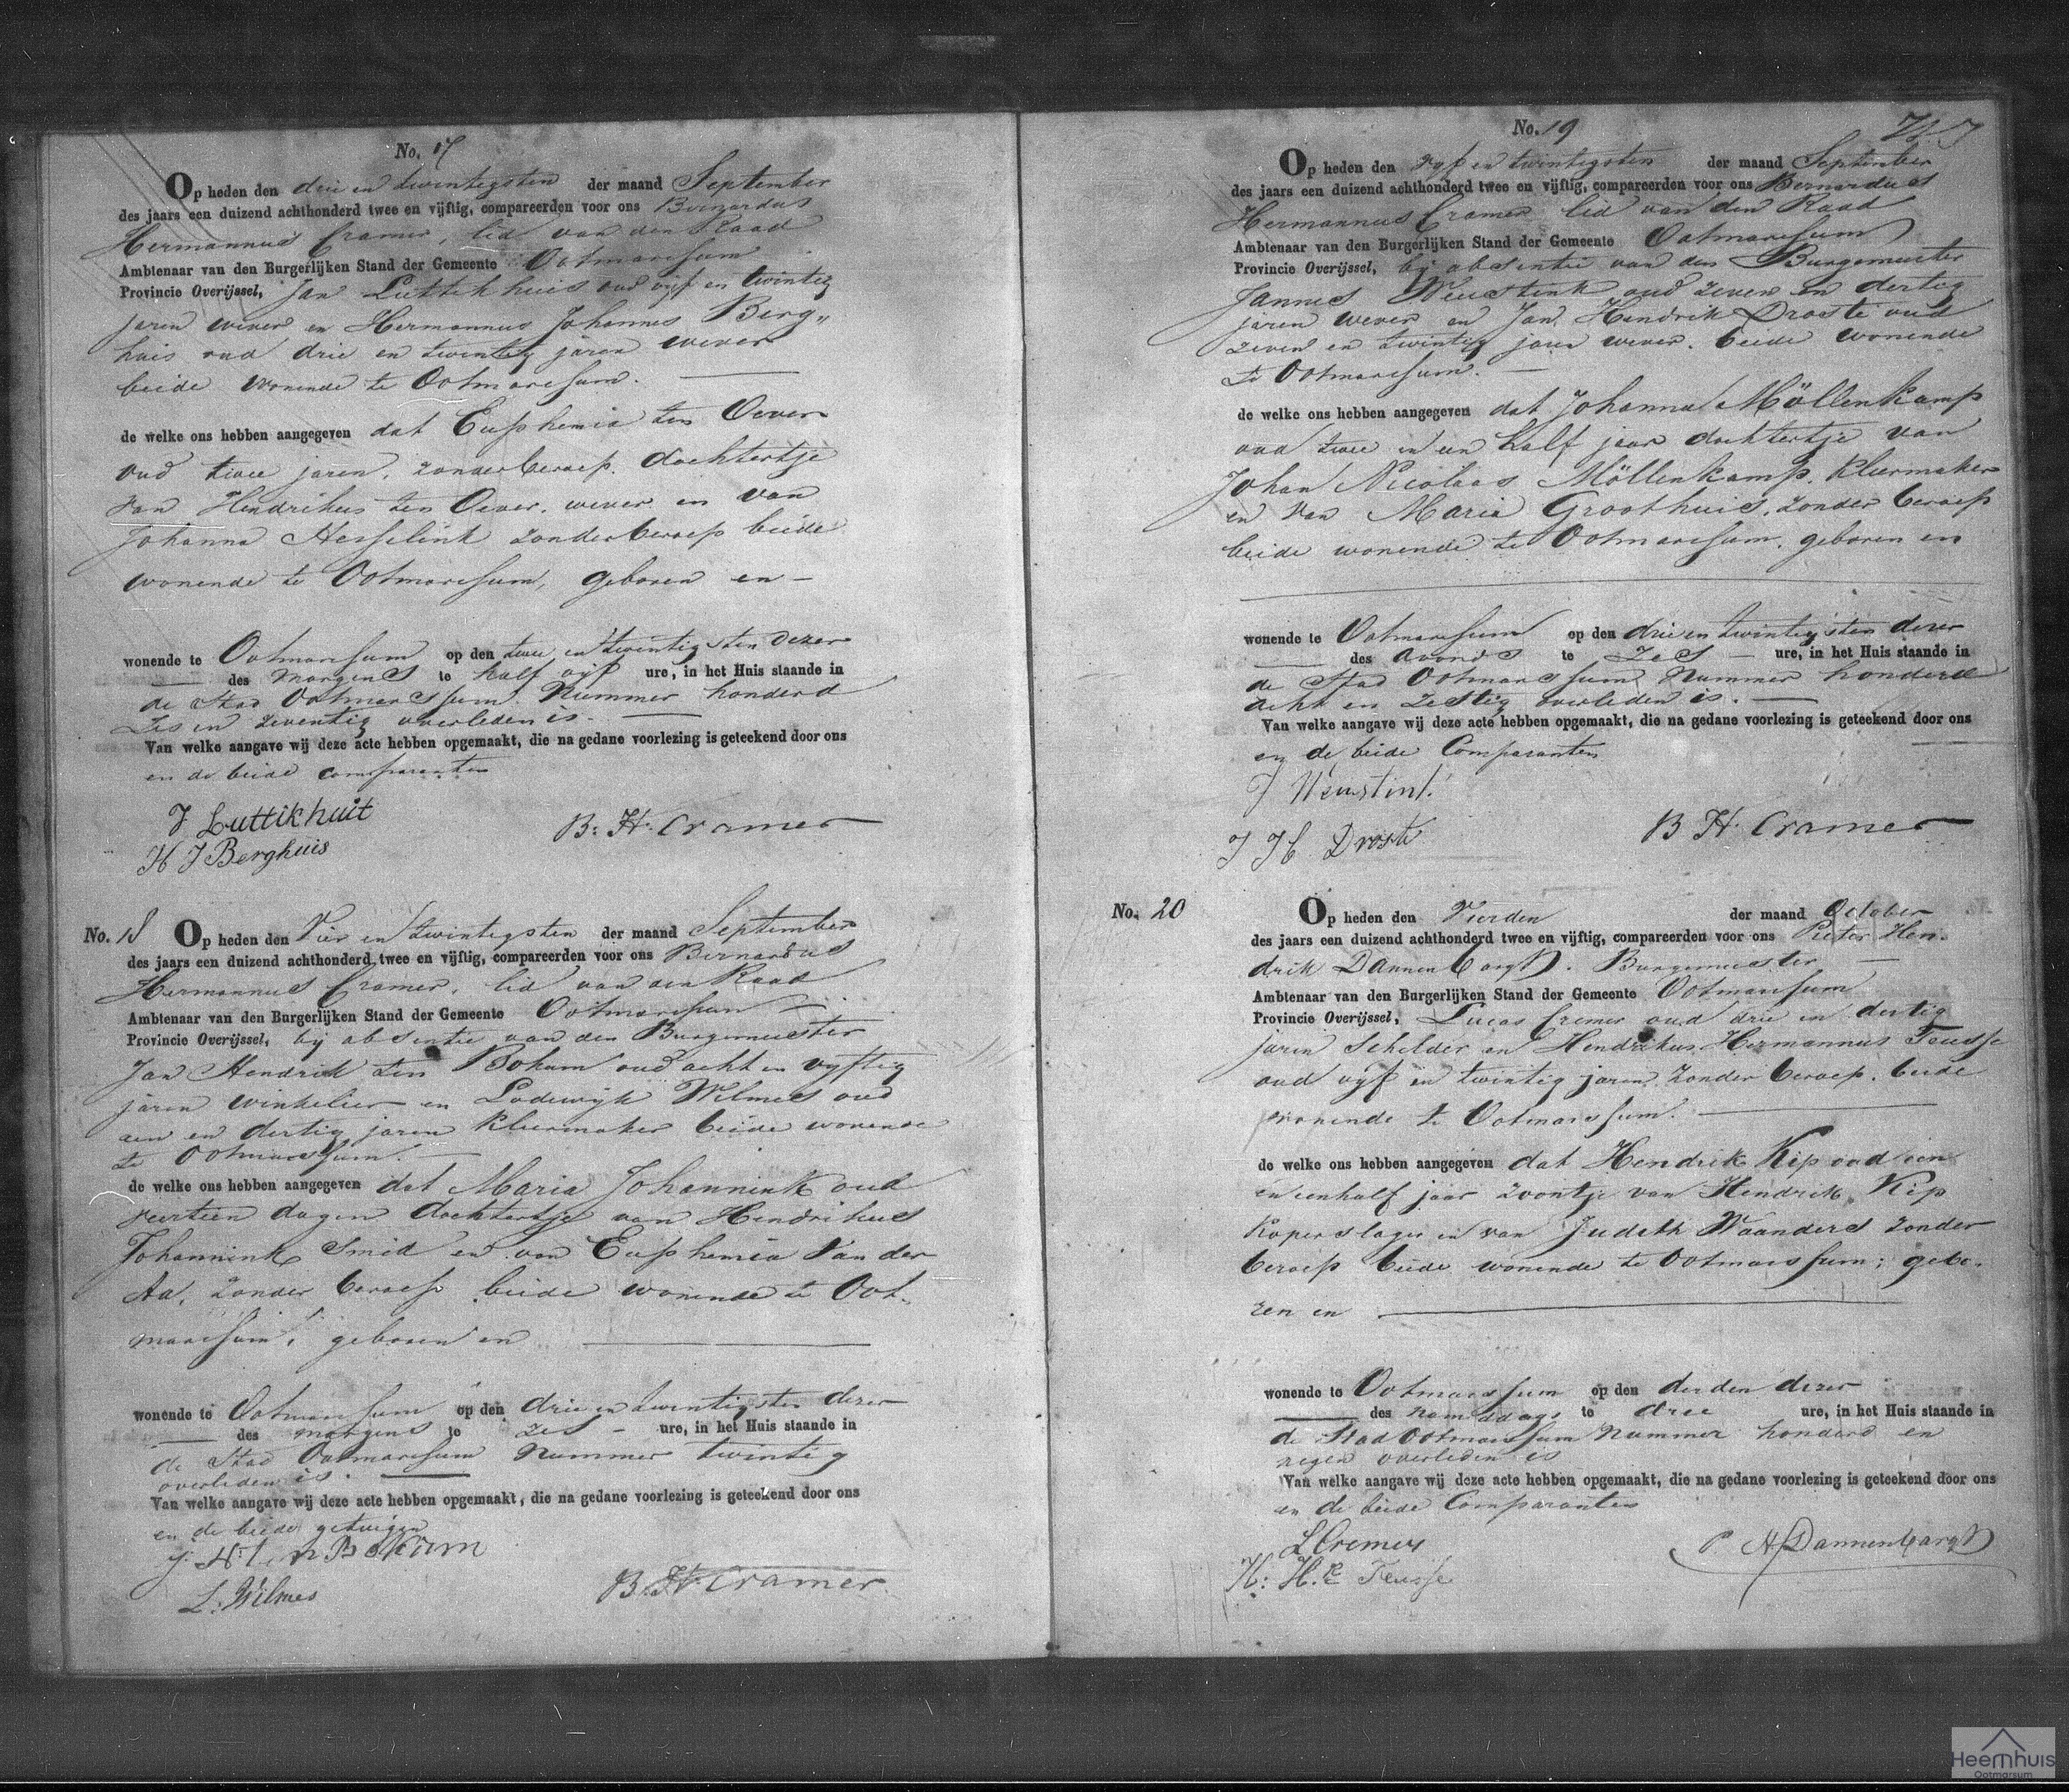 No. 17
Op heden den drie en twintigsten der maand September
des jaars een duizend achthonderd twee en vijftig, compareerden voor ons Bernardus
Hermannus Cramer, lid van den Raad
Ambtenaar van den Burgerlijken Stand der Gemeente Ootmarssum
Provincie Overijssel, Jan Luttikhuis oud vyf en twintig
jaren wever en Hermannus Johannes Berg„
huis oud drie en twintig jaren wever
beide wonende te Ootmarssum.
de welke ons hebben aangegeven dat Euphemia ten Oever
oud twee jaren, zonder beroep. dochtertje
van Hendrikus ten Oever. wever en van
Johanna Hesselink zonder beroep beide
wonende te Ootmarssum, geboren en —
wonende te Ootmarssum op den twee en twintigsten dezer
des morgens te half vyf ure, in het Huis staande in
de Stad Ootmarssum Nummer honderd
Zes en zeventig overleden is.
Van welke aangave wij deze acte hebben opgemaakt, die na gedane voorlezing is geteekend door ons
en de beide comparanten
J Luttikhuit
H J Berghuis
B: H: Cramer
No. 18 Op heden den Vier en twintigsten der maand September
des jaars een duizend achthonderd twee en vijftig, compareerden voor ons Bernardus
Hermannus Cramer, lid van den Raad
Ambtenaar van den Burgerlijken Stand der Gemeente Ootmarssum
Provincie Overijssel, by absentie van den Burgemeester
Jan Hendrik ten Bokum oud acht en vyftig
jaren winkelier en Lodewyk Wilmes oud
een en dertig jaren kleermaker beide wonende
te Ootmarssum. —
de welke ons hebben aangegeven dat Maria Johannink oud
veertien dagen dochtertje van Hendrikus
Johannink Smid en van Euphemia Van der
Aa, zonder beroep beide wonende te Oot„
marssum, geboren en
wonende te Ootmarssum op den drie en twintigsten dezer
des morgens te zes ure, in het Huis staande in
de Stad Ootmarssum Nummer twintig
overleden is.
Van welke aangave wij deze acte hebben opgemaakt, die na gedane voorlezing is geteekend door ons
en de beide getuigen
J. H. ten Bokum
L: Wilmes
B. H. Cramer
No. 19
Op heden den vyf en twintigsten der maand September
des jaars een duizend achthonderd twee en vijftig, compareerden voor ons Bernardus
Hermannus Cramer lid van den Raad
Ambtenaar van den Burgerlijken Stand der Gemeente Ootmarssum
Provincie Overijssel, by absentie van den Burgemeester
Jannes Weustink oud zeven en dertig
jaren wever en Jan Hendrik Droste oud
zeven en twintig jaar wever. beide wonende
te Ootmarssum. —
de welke ons hebben aangegeven dat Johanna Möllenkamp
oud twee en een half jaar dochtertje van
Johan Nicolaas Möllenkamp. kleermaker
en van Maria Groothuis, zonder beroep
beide wonende te Ootmarssum. geboren en
wonende te Ootmarssum op den drie en twintigsten dezer
des avonds te zes — ure, in het Huis staande in
de Stad Ootmarssum Nummer honderd
acht en zestig overleden is. —
Van welke aangave wij deze acte hebben opgemaakt, die na gedane voorlezing is geteekend door ons
en de beide Comparanten
J Weustink
J H Droste
B H. Cramer
No. 20 Op heden den Vierden der maand October
des jaars een duizend achthonderd twee en vijftig, compareerden voor ons Pieter Hen-
drik Dannenbargt. Burgemeester —
Ambtenaar van den Burgerlijken Stand der Gemeente Ootmarssum
Provincie Overijssel, Lucas Cremer oud drie en dertig
jaren Schilder en Hendrikus Hermannus Teusse
oud vyf en twintig jaren zonder beroep. beide
wonende te Ootmarssum.
de welke ons hebben aangegeven dat Hendrik Kip oud een
en een half jaar zoontje van Hendrik Kip
Koperslager en van Judith Waanders zonder
beroep beide wonende te Ootmarssum; gebo-
ren en
wonende te Ootmarssum op den derden dezer
des namiddags te drie ure, in het Huis staande in
de Stad Ootmarssum Nummer honderd en
negen overleden is
Van welke aangave wij deze acte hebben opgemaakt, die na gedane voorlezing is geteekend door ons
en de beide Comparanten
L Cremer
H: H. Teusse
P. H Dannenbargt
Heemhuis
Ootmarsum